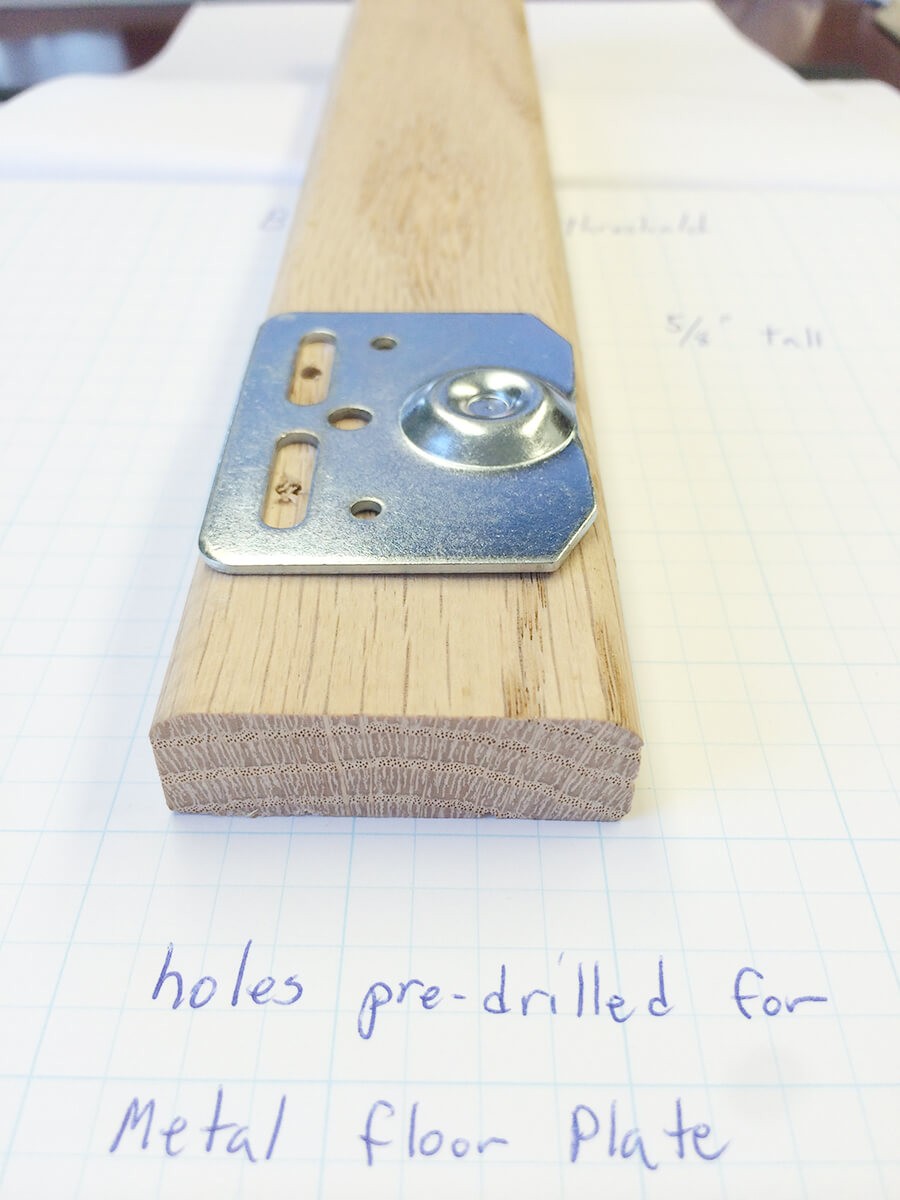 threshold
5/8" tall
holes pre-drilled for
Metal floor Plate